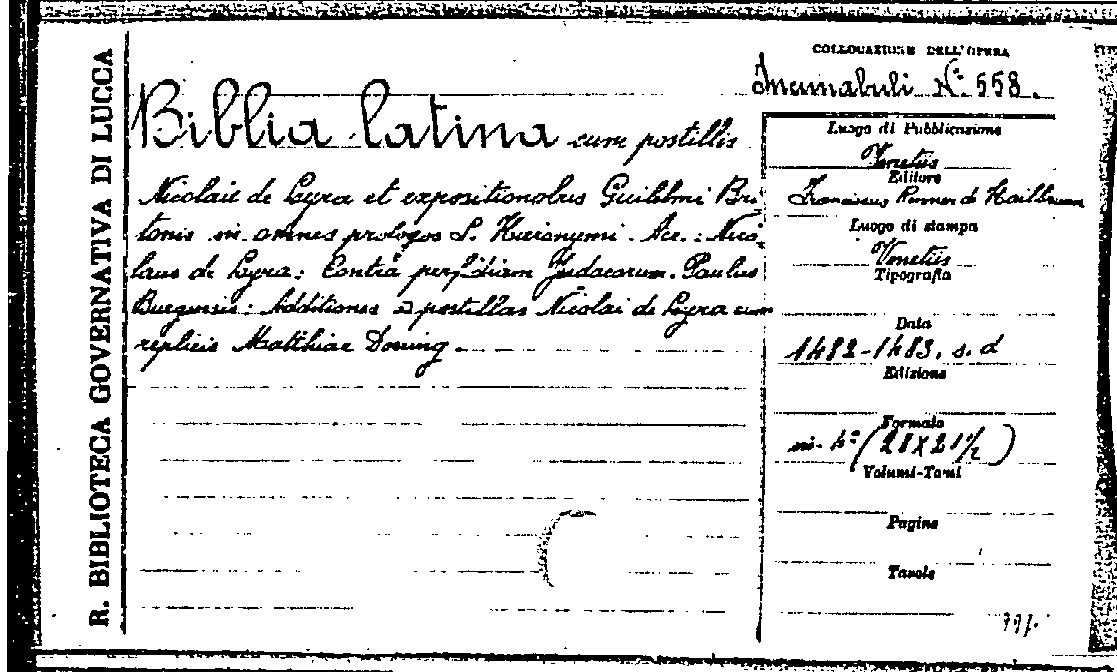 R. BIBLIOTECA GOVERNATIVA DI LUCCA
COLLOCAZIONE DELL'OPERA
Incunabuli N.º 558.
Biblia latina cum postillis
Nicolai de Lyra et expositionibus Guillelmi Bri
tonis in omnes prologos S. Hieronymi. Acc.: Nico
laus de Lyra: Contra perfidiam Judaeorum. Paulus
Burgensis: Additiones a postillas Nicolai de Lyra cum
replicis Matthiae Doring.
Luogo di Pubblicazione
Venetiis
Editore
Franciscus Renner de Hailbrun
Luogo di stampa
Venetiis
Tipografia
Data
1482-1483, s. d
Edizione
Formato
in-4º (28 X 21 1/2)
Volumi-Tomi
Pagine
Tavole